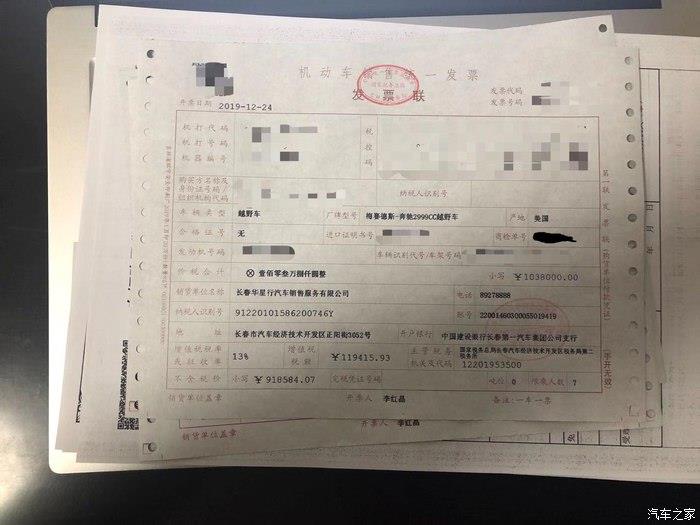 机动车销售统一发票
发票联
发票代码
开票日期 2019-12-24
发票号码
机打代码
机打号码
机器编号
税控码
购买方名称及
身份证号码/
组织机构代码
纳税人识别号
车辆类型 越野车 厂牌型号 梅赛德斯-奔驰2999CC越野车 产地 美国
合格证号 无 进口证明书号 商检单号
发动机号码 车辆识别代号/车架号码
价税合计 ⊗壹佰零叁万捌仟圆整 小写 ￥1038000.00
销货单位名称 长春华星行汽车销售服务有限公司 电话 89278888
纳税人识别号 91220101586200746Y 账号 22001460300055019419
地址 长春市汽车经济技术开发区正阳街3052号 开户银行 中国建设银行长春第一汽车集团公司支行
增值税税率或征收率 13% 增值税税额 ￥119415.93 主管税务机关及代码 国家税务总局长春汽车经济技术开发区税务局第二税务所
12201953500
不含税价 小写 ￥918584.07 完税凭证号码 吨位 0 限乘人数 7
销货单位盖章 开票人 李红晶 备注:一车一票
销货单位盖章 开票人 李红晶
第一联 发票联(购货单位付款凭证)
(手开无效)
年 月 日
免
汽车之家